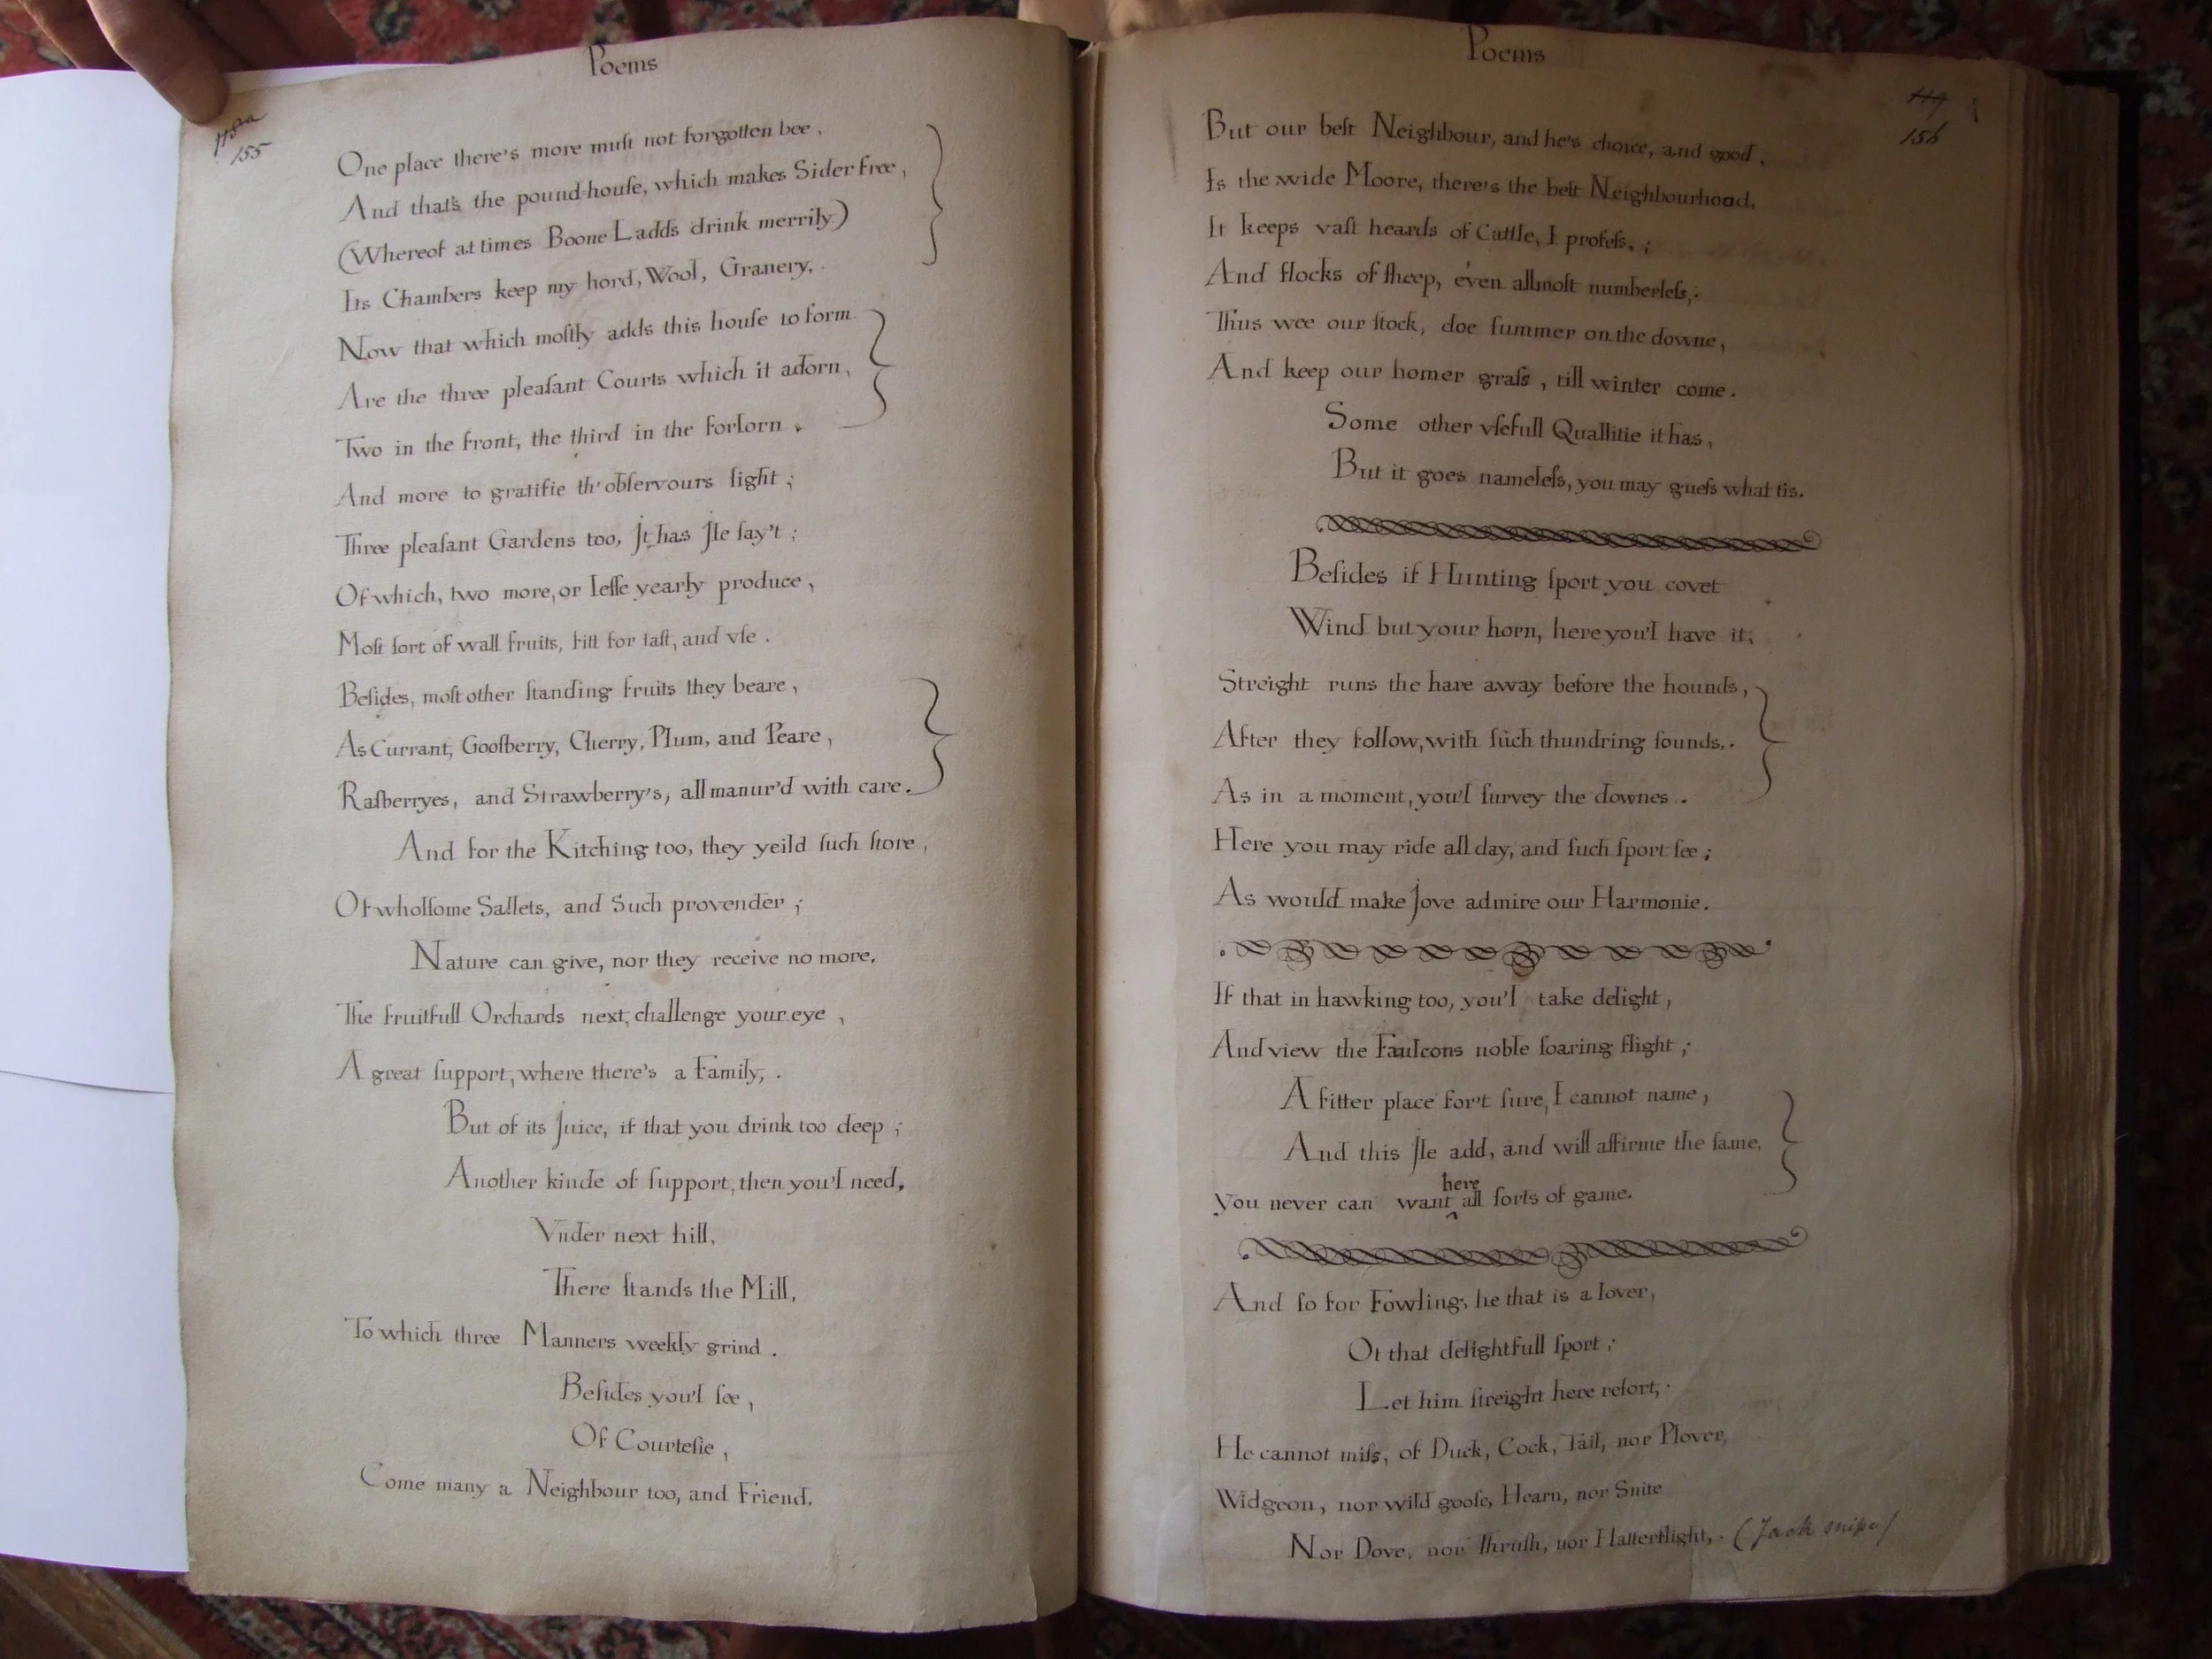 Poems
155
One place there's more must not forgotten bee,
And that's the pound-house, which makes Sider free,
(Whereof at times Boone Ladds drink merrily)
Its Chambers keep my hord, Wool, Granery,.
Now that which mostly adds this house to form
Are the three pleasant Courts which it adorn,
Two in the front, the third in the forlorn.
And more to gratifie th'observours sight;
Three pleasant Gardens too, It has Ile say't;
Of which, two more, or lesse yearly produce,
Most sort of wall fruits, fitt for tast, and vse.
Besides, most other standing fruits they beare,
As Currant, Goosberry, Cherry, Plum, and Peare,
Rasberryes, and Strawberry's, all manur'd with care.
And for the Kitching too, they yeild such store,
Of wholsome Sallets, and Such provender;
Nature can give, nor they receive no more.
The fruitfull Orchards next, challenge your eye,
A great support, where there's a Family,.
But of its Juice, if that you drink too deep;
Another kinde of support, then you'l need.
Vnder next hill,
There stands the Mill,
To which three Manners weekly grind.
Besides you'l see,
Of Courtesie,
Come many a Neighbour too, and Friend.
Poems
119
156
But our best Neighbour, and he's choice, and good,
Is the wide Moore, there's the best Neighbourhood.
It keeps vast heards of Cattle, I profess,;
And flocks of sheep, even allmost numberless,.
Thus wee our stock, doe summer on the downe,
And keep our homer grass, till winter come.
Some other vsefull Quallitie it has,
But it goes nameless, you may guess what tis.
Besides if Hunting sport you covet
Wind but your horn, here you'l have it,
Streight runs the hare away before the hounds,
After they follow, with such thundring sounds,.
As in a moment, you'l survey the downes.
Here you may ride all day, and such sport see;
As would make Jove admire our Harmonie.
If that in hawking too, you'l take delight,
And view the Faulcons noble soaring flight;
A fitter place for't sure, I cannot name,
And this Ile add, and will affirme the same,
here
You never can want all sorts of game.
And so for Fowling, he that is a lover,
Of that delightfull sport;
Let him streight here resort,.
He cannot miss, of Duck, Cock, Tail, nor Plover,
Widgeon, nor wild goose, Hearn, nor Snite
Nor Dove, nor Thrush, nor Hatterflight,. (Jack snipe)